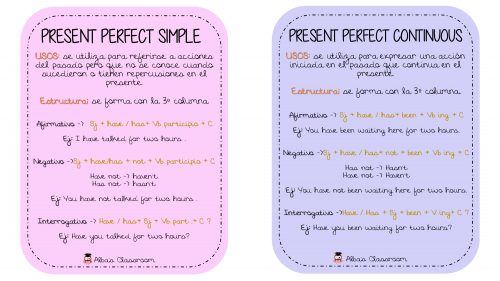 PRESENT PERFECT SIMPLE
USOS: se utiliza para referirse a acciones
del pasado pero que no se conoce cuando
sucedieron o tienen repercusiones en el
presente.
Estructura: se forma con la 3ª columna
Afirmativo -> Sj + have / has+ Vb participio + C
Ej: I have talked for two hours .
Negativo ->Sj + have/has + not + Vb participio + C
Have not -> haven't
Has not -> hasn't
Ej: You have not talked for two hours .
Interrogativo -> Have / has+ Sj + Vb part .+ C ?
Ej: Have you talked for two hours?
Alba's Classroom
PRESENT PERFECT CONTINUOUS
USOS: se utiliza para expresar una acción
iniciada en el pasado que continua en el
presente.
Estructura: se forma con la 3ª columna
Afirmativo -> Sj + have / has + been + Vb ing + C
Ej: You have been waiting here for two hours.
Negativo ->Sj + have/has+ not + been + Vb ing + C
Has not -> Hasn't
Have not -> Haven't
Ej: You have not been waiting here for two hours.
Interrogativo ->Have / Has + Sj + been + V ing+ C ?
Ej: Have you been waiting for two hours?
Alba's Classroom